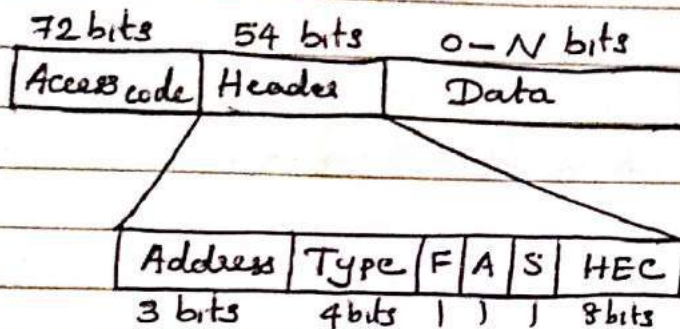 72 bits 54 bits 0 - N bits
Access code Header Data
Address Type F A S HEC
3 bits 4 bits 1 1 1 8 bits